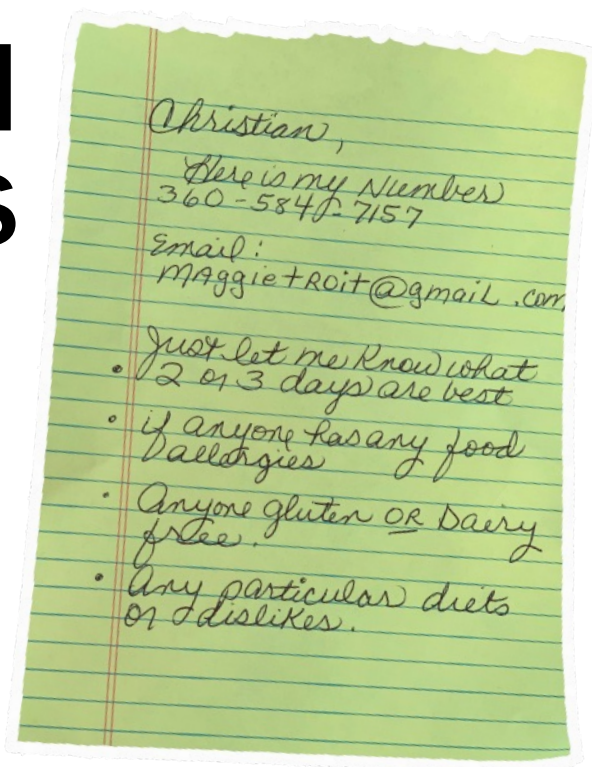 Christian,
Here is my Number
360-584-7157
Email:
MAggietRoit@gmaiL.com
Just let me Know what
• 2 or 3 days are best
• if anyone has any food
allergies
• Anyone gluten OR Dairy
free.
• Any particular diets
or dislikes.